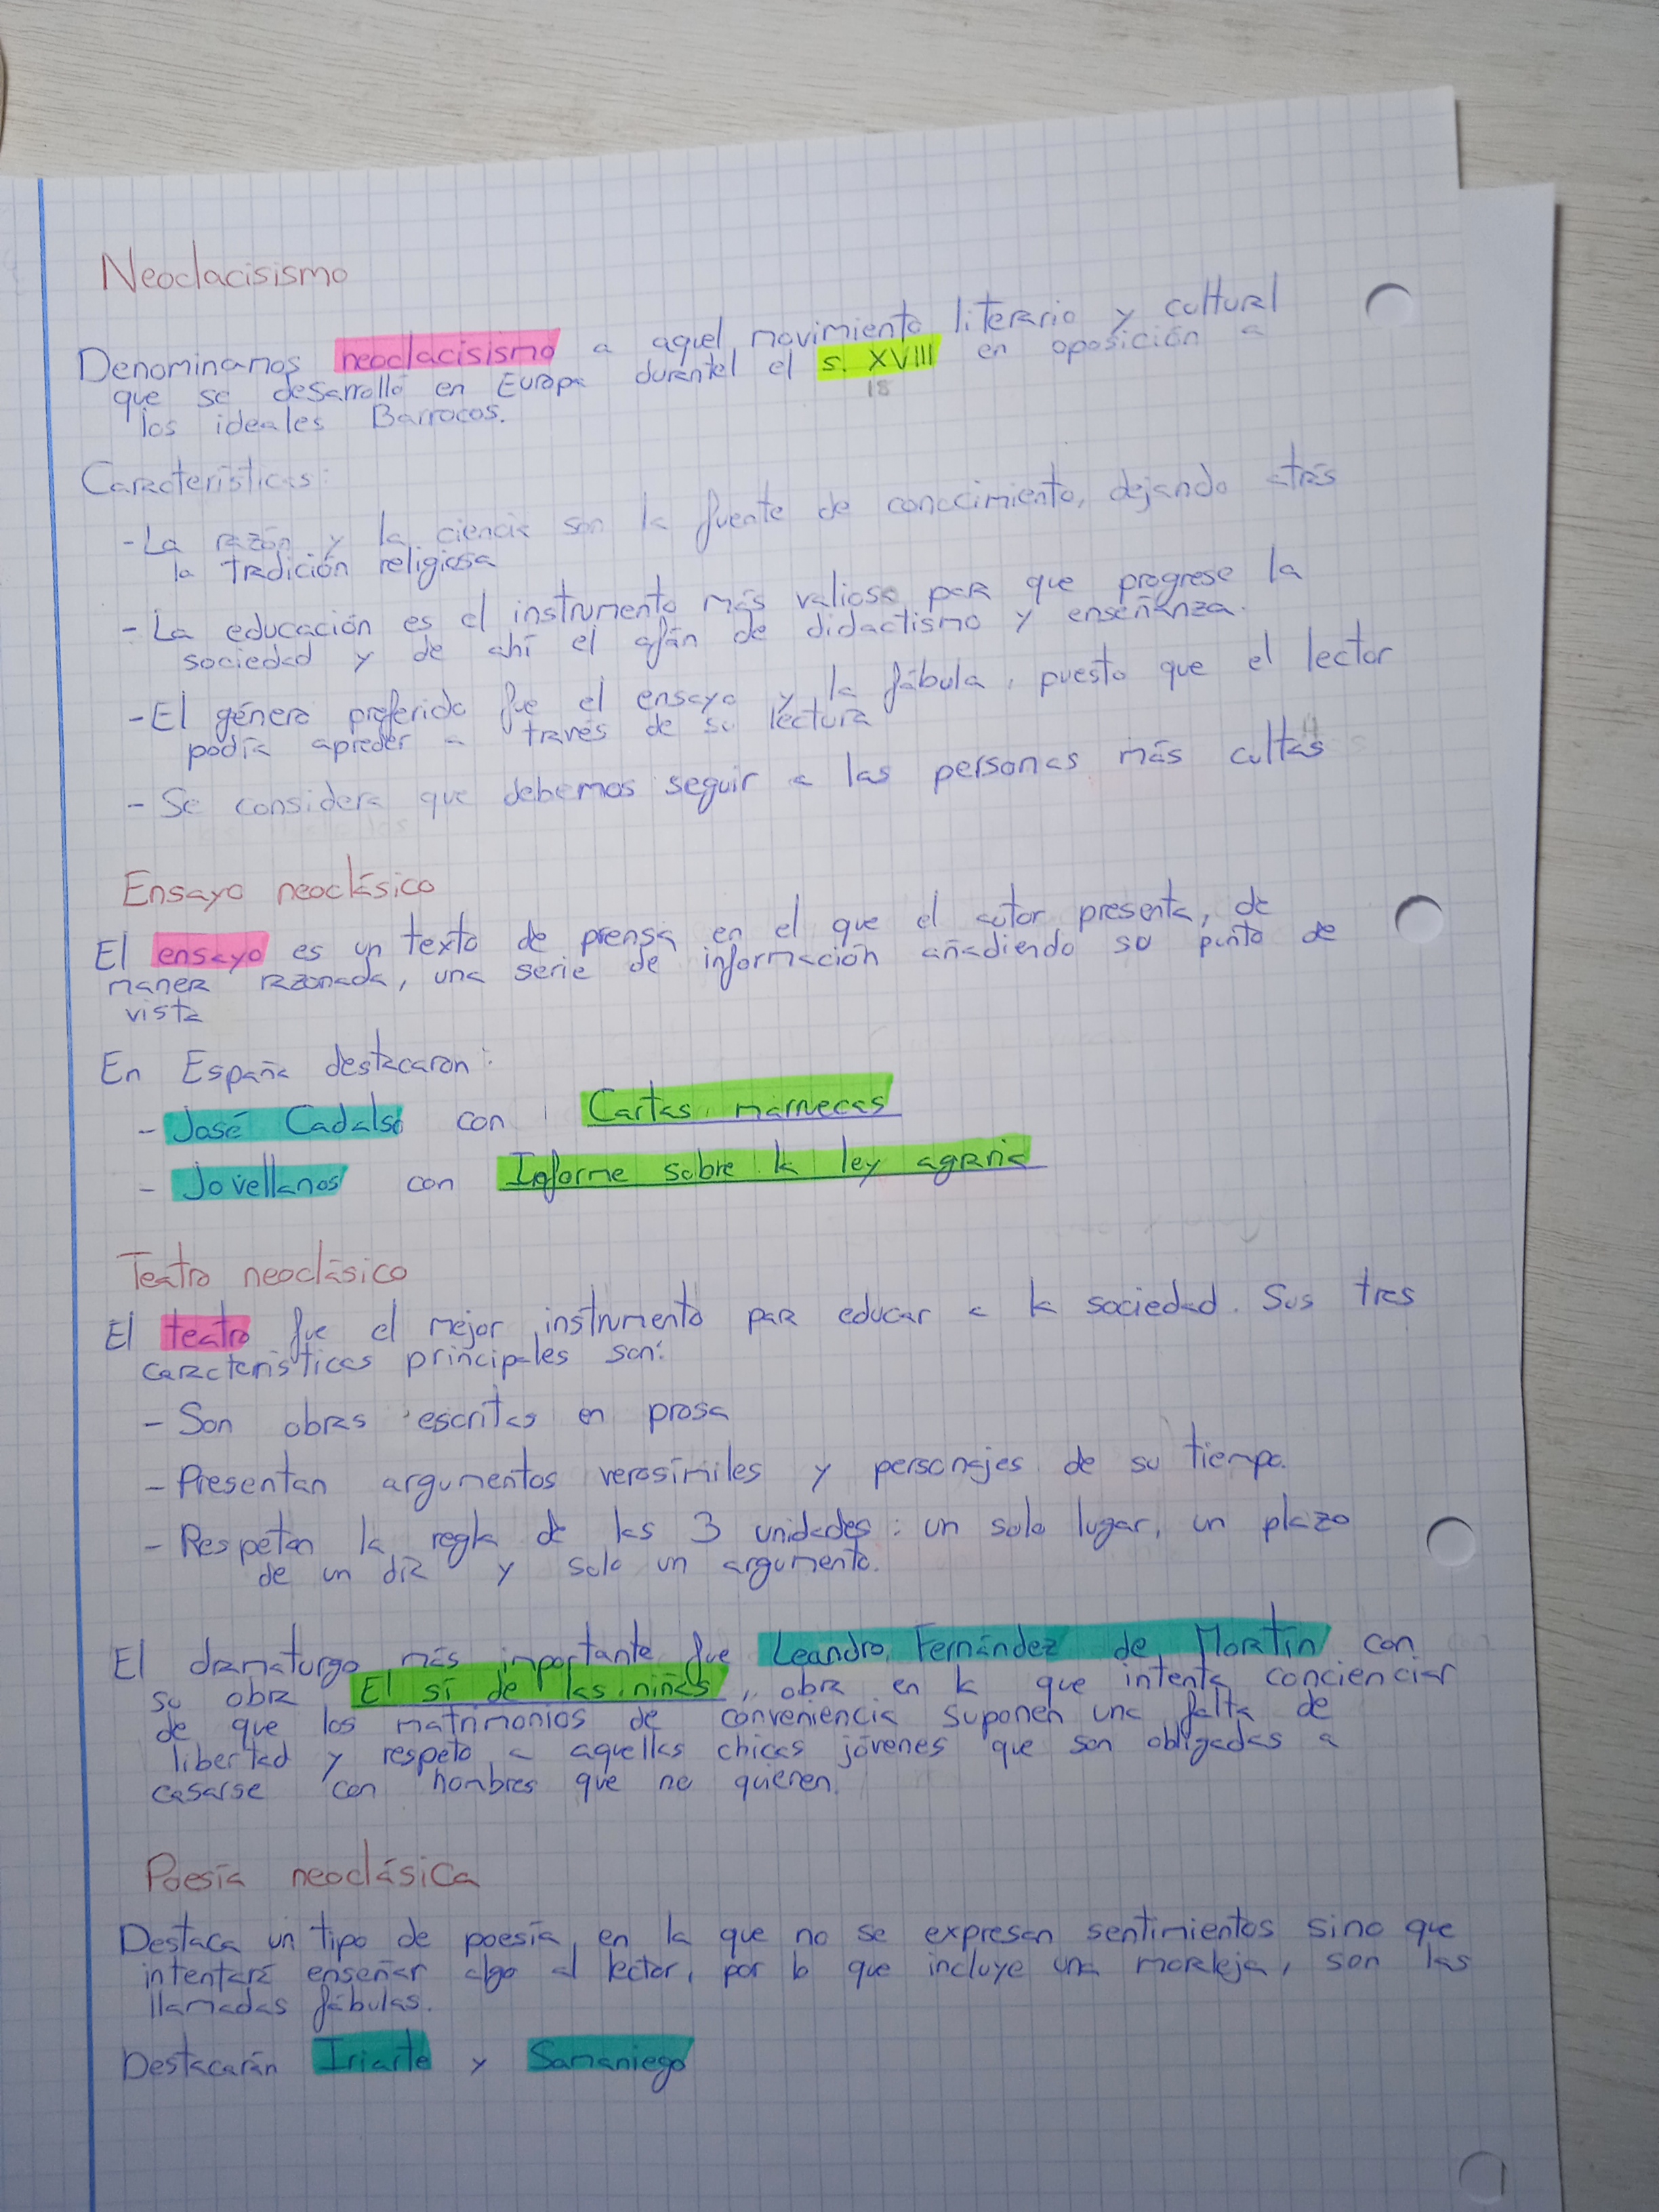 Neoclacisismo
Denominamos neoclacisismo a aquel movimiento literario y cultural
que se desarrolló en Europa durantel el s. XVIII en oposición a
18
los ideales Barrocos.
Características:
- La razón y la ciencia son la fuente de conocimiento, dejando atrás
la tradición religiosa
- La educación es el instrumento más valioso para que progrese la
sociedad y de ahí el afán de didactismo y enseñanza.
- El género preferido fue el ensayo y la fábula, puesto que el lector
podía apreder a través de su lectura
- Se considera que debemos seguir a las personas más cultas
Ensayo neoclásico
El ensayo es un texto de prensa en el que el autor presenta, de
manera razonada, una serie de información añadiendo su punto de
vista
En España destacaron:
- José Cadalso con Cartas marruecas
- Jovellanos con Informe sobre la ley agraria
Teatro neoclásico
El teatro fue el mejor instrumento para educar a la sociedad. Sus tres
características principales son:
- Son obras escritas en prosa
- Presentan argumentos verosímiles y personajes de su tiempo.
- Respetan la regla de las 3 unidades: un solo lugar, un plazo
de un día y solo un argumento.
El dramaturgo más importante fue Leandro Fernández de Moratín con
su obra El sí de las niñas, obra en la que intenta concienciar
de que los matrimonios de conveniencia suponen una falta de
libertad y respeto a aquellas chicas jóvenes que son obligadas a
casarse con hombres que no quieren.
Poesía neoclásica
Destaca un tipo de poesía en la que no se expresan sentimientos sino que
intentará enseñar algo al lector, por lo que incluye una moraleja, son las
llamadas fábulas.
Destacarán Iriarte y Samaniego